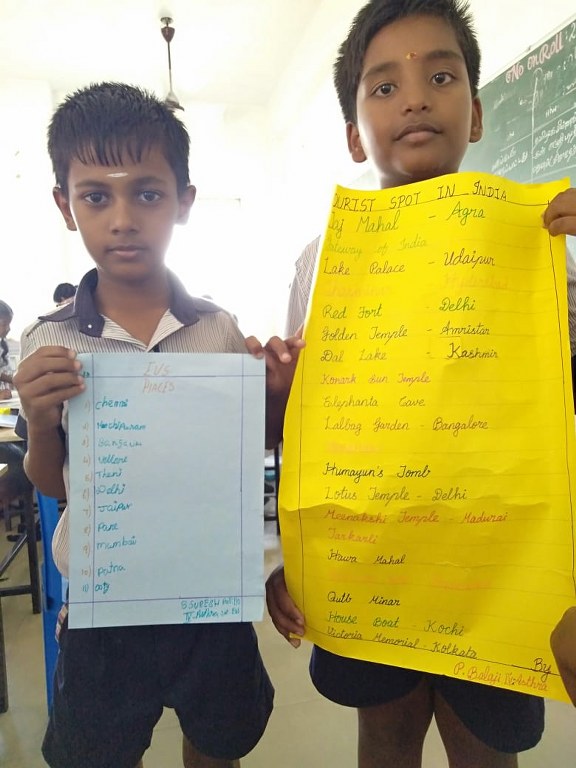 IVS
PLACES
1) Chennai
2) Kanchipuram
3) Bangalur
4) Vellore
5) Theni
6) Delhi
7) Jaipur
8) Pune
9) mumbai
10) patna
11) ooty
TOURIST SPOT IN INDIA
Taj Mahal - Agra
Gateway of India
Lake Palace - Udaipur
Charminar - Hyderabad
Red Fort - Delhi
Golden Temple - Amristar
Dal Lake - Kashmir
Konark Sun Temple
Elephanta Cave
Lalbag Garden - Bangalore
Humayun's Tomb
Lotus Temple - Delhi
Meenakshi Temple - Madurai
Tarkarli
Hawa Mahal
Qutb Minar
House Boat - Kochi
Victoria Memorial - Kolkata
By
P. Balaji
ENROLL